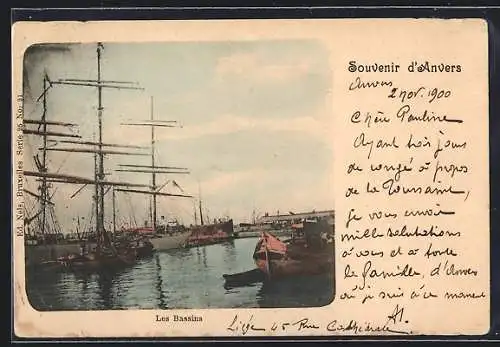 Souvenir d'Anvers
Anvers
2 nov. 1900
Chère Pauline
Ayant trois jours
de congé à propos
de la Toussaint,
je vous envoie
mille salutations
à vous et à toute
la famille, d'Anvers
où je suis à ce moment
Ed. Nels, Bruxelles Serie 25 No. 31
Les Bassins
Liège 45 Rue Cathédrale